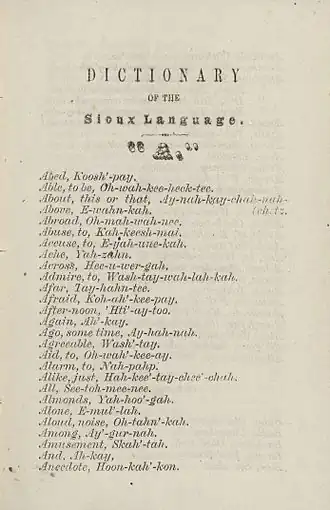 DICTIONARY
OF THE
Sioux Language.
Abed, Koosh'-pay.
Able, to be, Oh-wah-kee-heck-tee.
About, this or that, Ay-nah-kay-chah-nah-
Above, E-wahn-kah. (ch-tz.
Abroad, Oh-mah-wah-nee.
Abuse, to, Kah-keesh-mai.
Accuse, to, E-yah-une-kah.
Ache, Yah-zahn.
Across, Hee-u-wer-gah.
Admire, to, Wash-tay-wah-lah-kah.
Afar, Tay-hahn-tee.
Afraid, Koh-ah'-kee-pay.
After-noon, 'Hti'-ay-too.
Again, Ah'-kay.
Ago, some time, Ay-hah-nah.
Agreeable, Wash'-tay.
Aid, to, Oh-wah'-kee-ay.
Alarm, to, Nah-pahp.
Alike, just, Hah-kee'-tay-chee'-chah.
All, See-toh-mee-nee.
Almonds, Yah-hoo'-gah.
Alone, E-mul'-lah.
Aloud, noise, Oh-tahn'-kah.
Among, Ay'-gur-nah.
Amusement, Skah'-tah.
And, Ah-kay,
Anecdote, Hoon-kah'-kon.